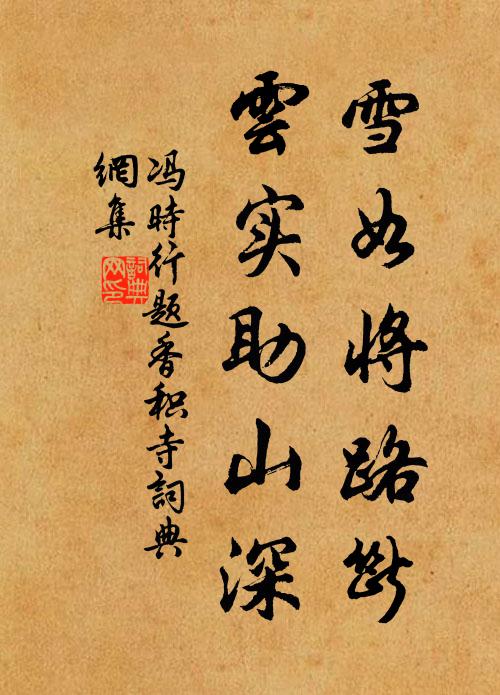 雪如将路断
雲实助山深
冯時行题香积寺詞典
網集
詞典
网印